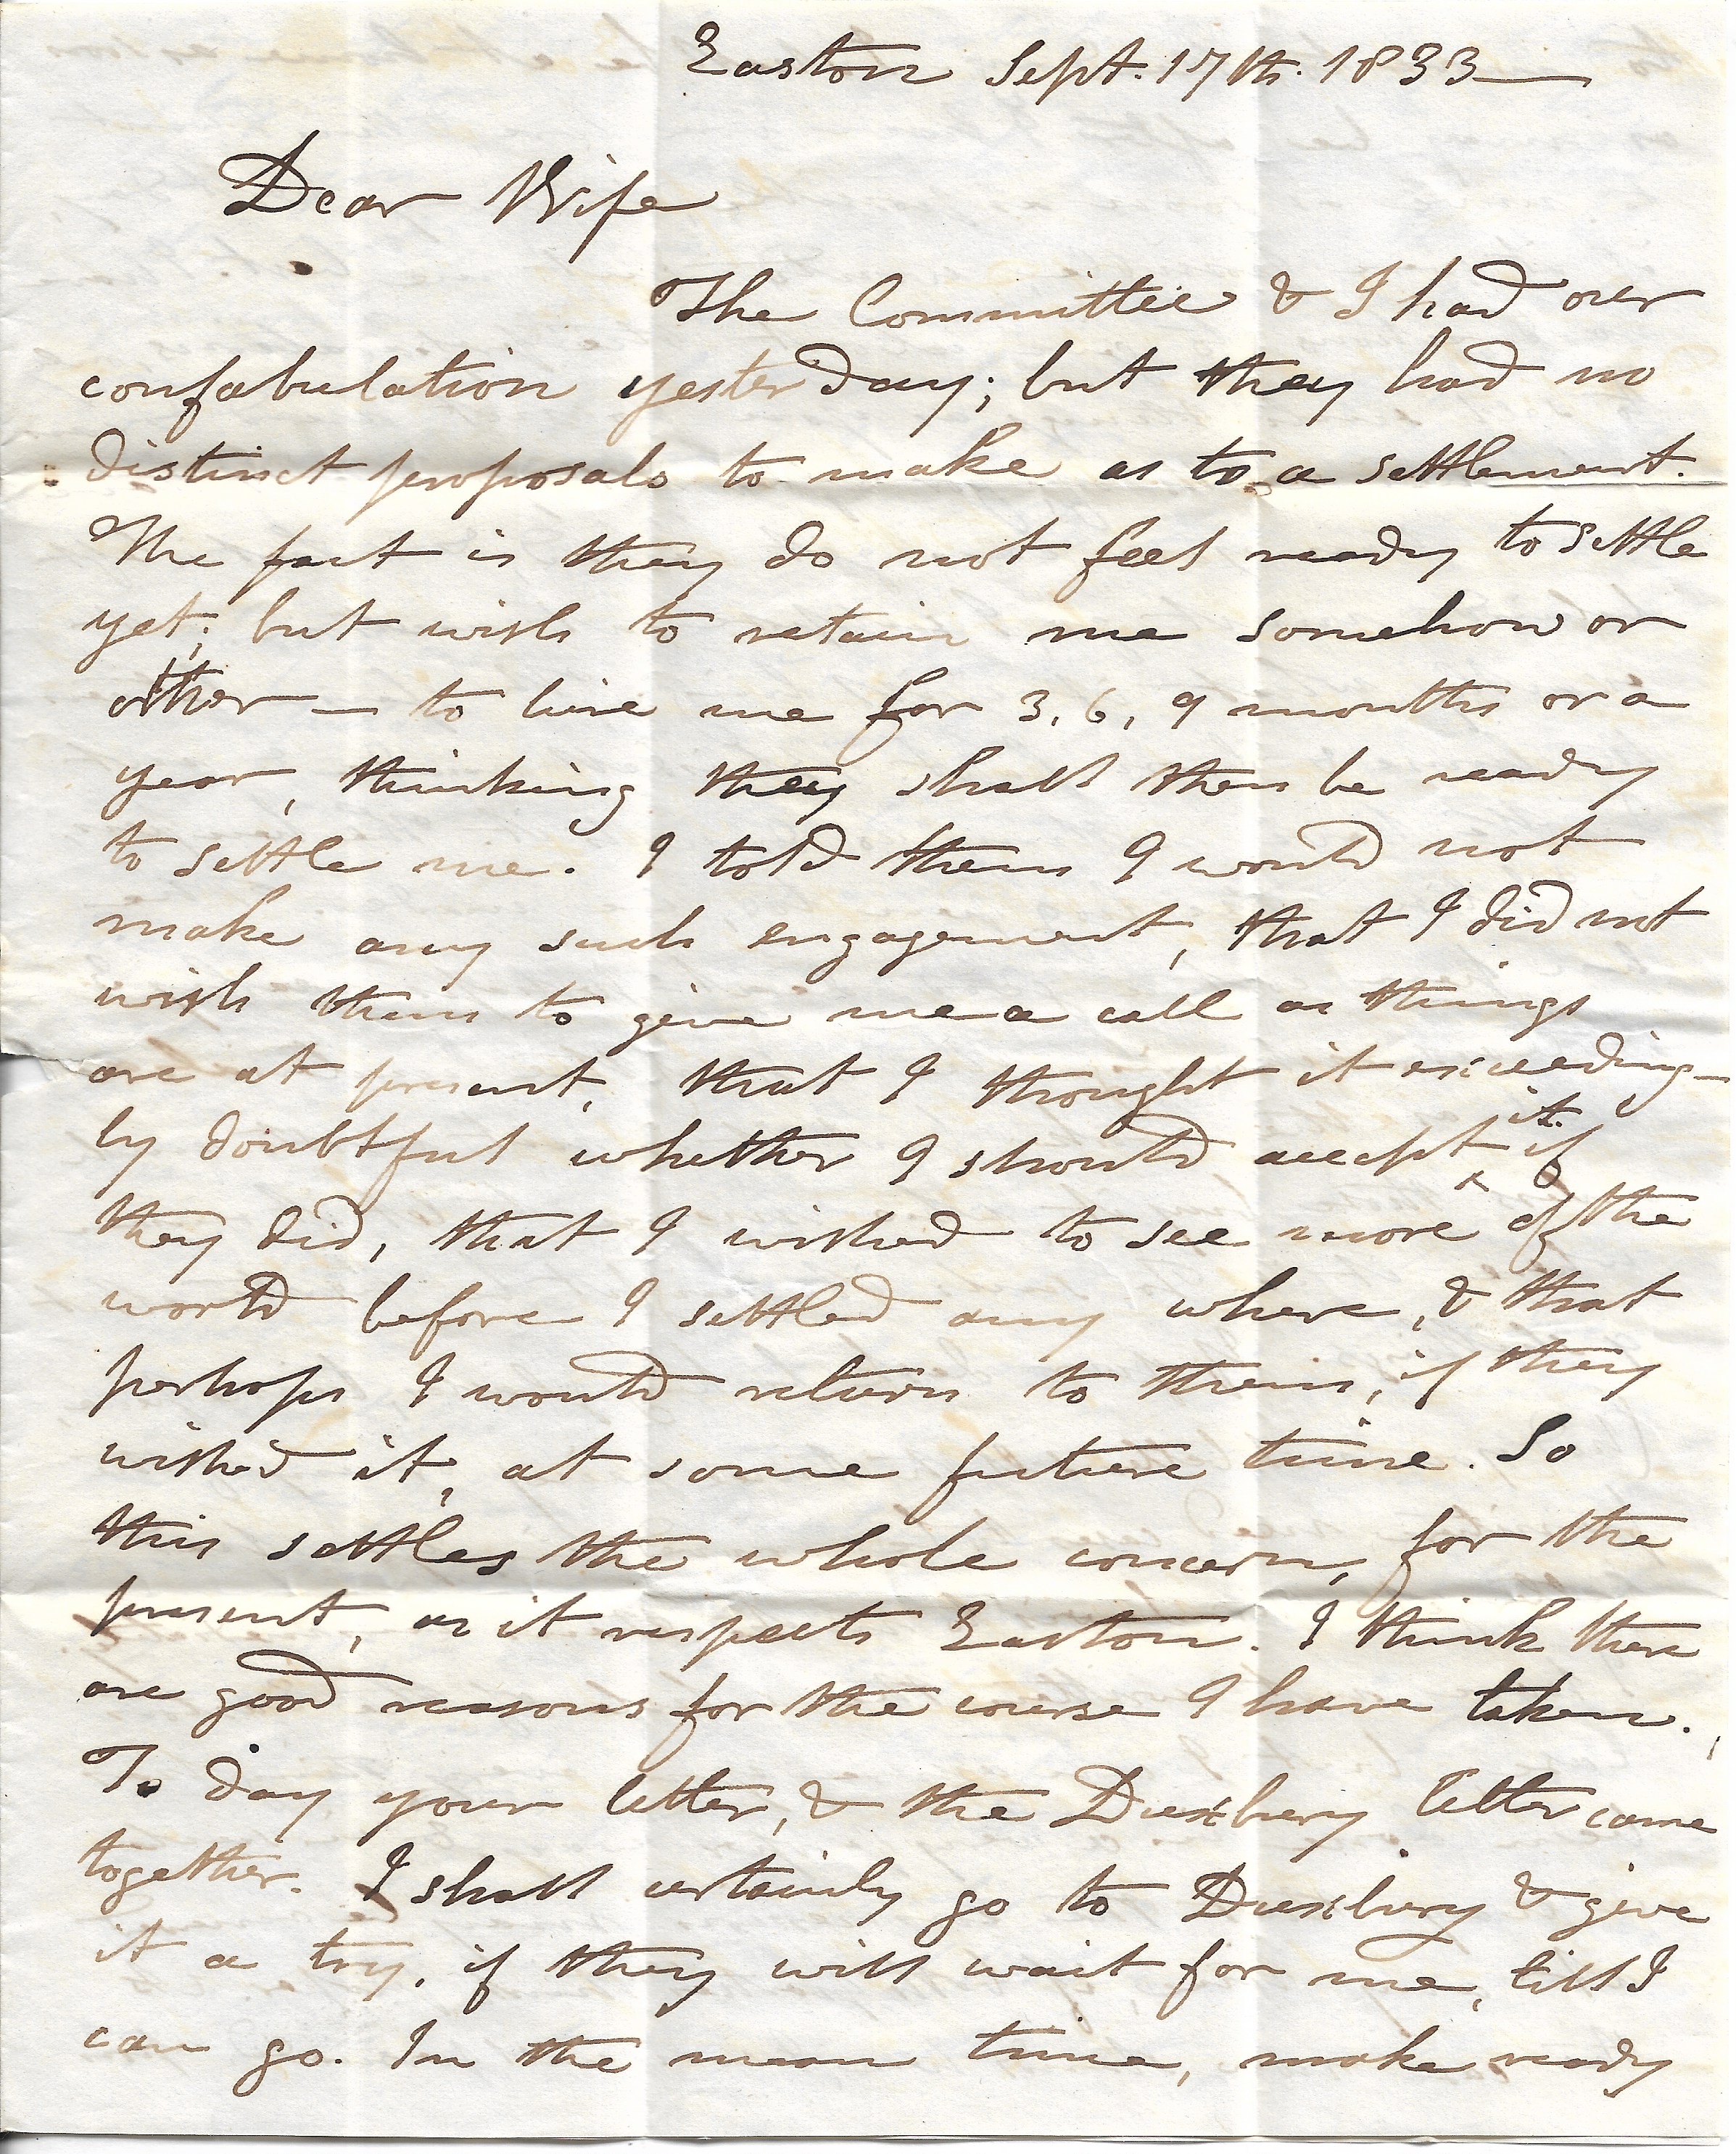 Easton Sept. 17th. 1833
Dear Wife
The Committee & I had our
confabulation yesterday; but they had no
distinct proposals to make as to a settlement.
The fact is they do not feel ready to settle
yet; but wish to retain me somehow or
other — to hire me for 3, 6, 9 months or a
year, thinking they shall then be ready
to settle me. I told them I would not
make any such engagement, that I did not
wish them to give me a call as things
are at present, that I thought it exceeding-
ly doubtful whether I should accept it if
they did, that I wished to see more of the
world before I settled any where, & that
perhaps I would return to them, if they
wished it, at some future time. So
this settles the whole concern, for the
present, as it respects Easton. I think there
are good reasons for the course I have taken.
To day your letter, & the Duxbury letter came
together. I shall certainly go to Duxbury & give
it a try, if they will wait for me, till I
can go. In the mean time, make ready